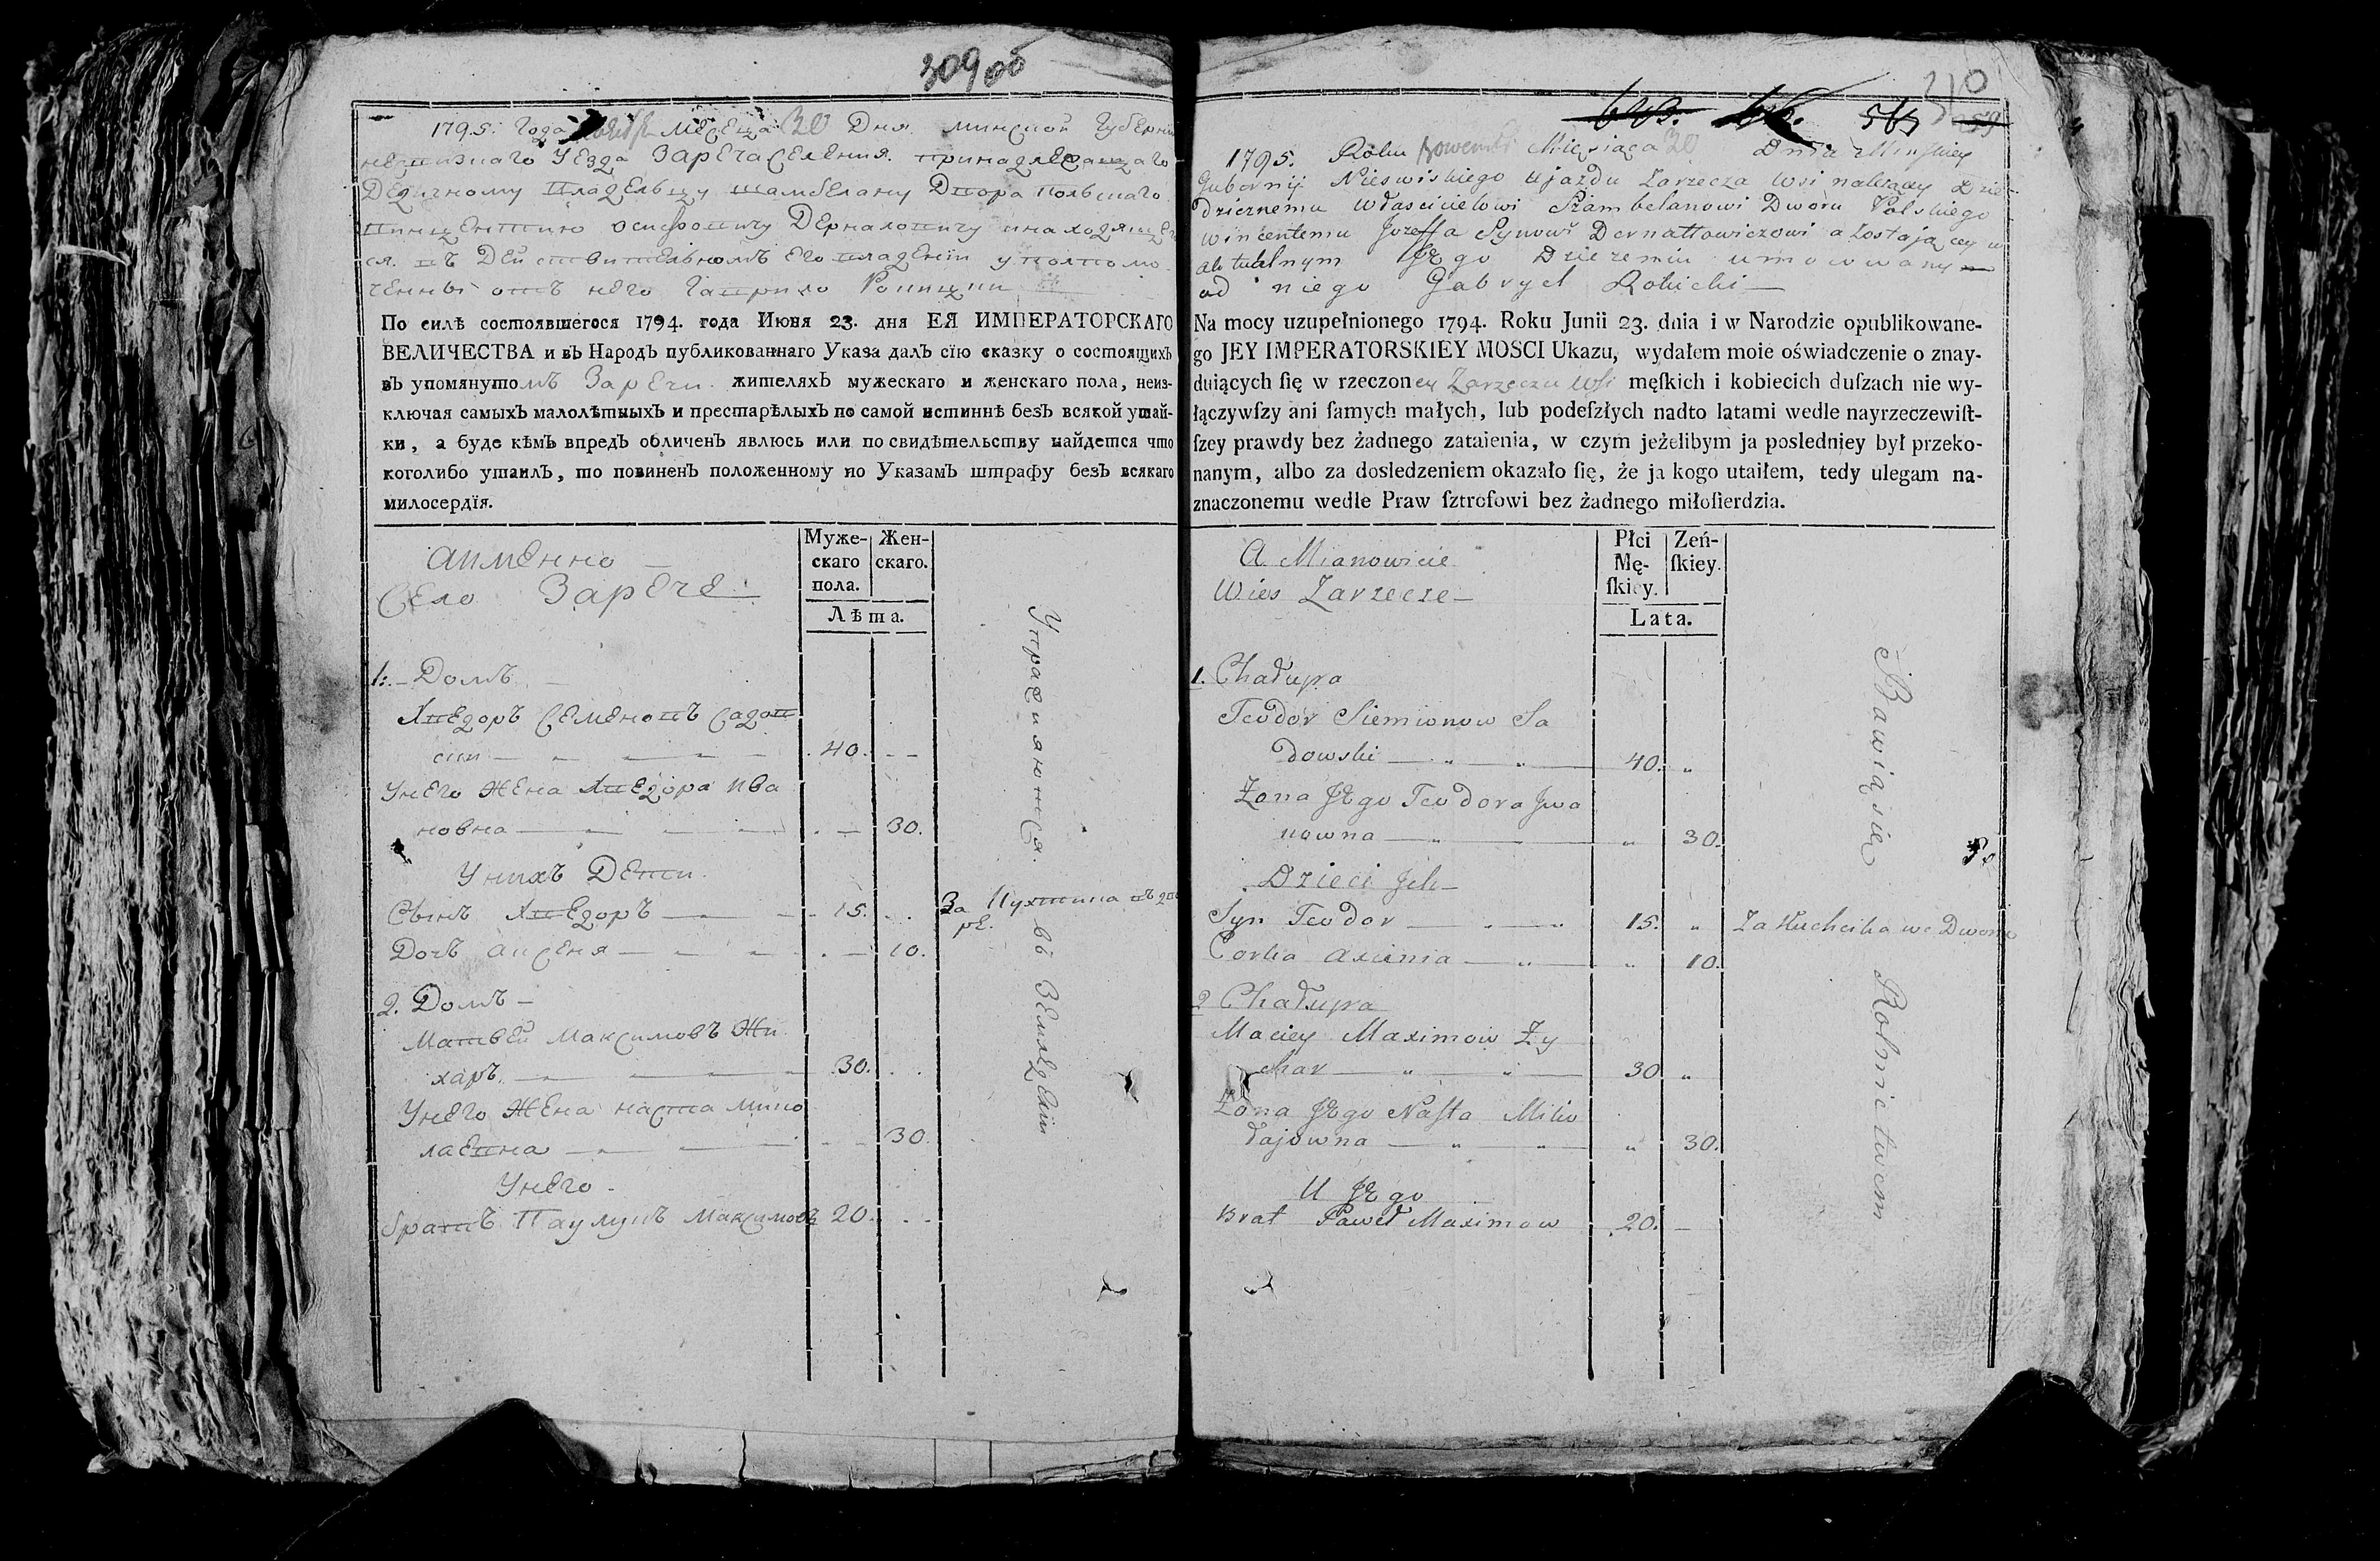 309 об
1795: Года Ноября Месеца 30 Дня минской Губерни
несвизкаго Уезда Заречаселения. принадлежащаго
Дедичному владельцу шамбелану Двора польскаго
винцентию осифовичу Дерналовичу инаходяще
ся. въ Действительномъ его владении уполномо
ченны отъ него Гаврило Ропицки
По силѣ состоявшегося 1794. года Июня 23. дня ЕЯ ИМПЕРАТОРСКАГО
ВЕЛИЧЕСТВА и въ Народъ публикованнаго Указа далъ сїю сказку о состоящихъ
въ упомянутомъ Заречи. жителяхъ мужескаго и женскаго пола, неиз-
ключая самыхъ малолѣтныхъ и престарѣлыхъ по самой истиннѣ безъ всякой утай-
ки, а буде кѣмъ впредъ обличенъ явлюсь или по свидѣтельству найдется что
коголибо утаилъ, то повиненъ положенному по Указамъ штрафу безъ всякаго
милосердїя.
Муже- Жен-
скаго скаго.
пола.
Лѣта.
аименно
Село Заречe
1: Домъ
Хведоръ Семеновъ Садов
ски 40.
Унего Жена Хведора Ива
новна 30.
Унихъ Дети.
Сынъ Хведоръ 15. За Кухтика въ дво
ре.
Дочъ аксеня 10.
2. Домъ
Матвей Максимовъ Жи
харъ 30.
Унего Жена наста мико
лаевна 30.
Унего
братъ Паулукъ Максимовъ 20.
Упражняются. въ Земледелии
310
603. 56. 565 59
1795. Roku Nowembr Miesiąca 30 Dnia Minskiey
Gubernij Nieswiskiego ujazdu Zarzecza Wsi należącey Dzie-
dzicznemu Własċicielowi Szambelanowi Dworu Polskiego
Wincentemu Jozeffa Synowi Dernałłowiczowi a zostającey w
aktualnym Jego Dzierzeniu umocowany
od niego Gabryel Robicki
Na mocy uzupełnionego 1794. Roku Junii 23. dnia i w Narodzie opublikowane-
go JEY IMPERATORSKIEY MOSCI Ukazu, wydałem moie oświadczenie o znay-
duiących ſię w rzeczoney Zarzeczu Wsi męſkich i kobiecich duſzach nie wy-
łączywſzy ani ſamych małych, lub podeſzłych nadto latami wedle nayrzeczewiſt-
ſzey prawdy bez żadnego zataienia, w czym jeżelibym ja posledniey był przeko-
nanym, albo za dosledzeniem okazało ſię, że ja kogo utaiłem, tedy ulegam na-
znaczonemu wedle Praw ſztrofowi bez żadnego miłoſierdzia.
Płci Zeń-
Mę- ſkiey.
ſkiey.
Lata.
A Mianowicie
Wies Zarzecze
1. Chałupa
Teodor Siemionow Sa
dowski 40. „
Żona Jego Teodora Jwa
nowna „ 30.
Dzieci Jch
Syn Teodor 15. „ Za Kuchcika we Dworze
Corka Axienia „ 10.
2 Chałupa
Maciey Maximow Zy
char 30 „
Żona Jego Nasta Miko
łajowna „ 30.
U Jego
Brat Paweł Maximow 20.
Bawią się Rolnictwem